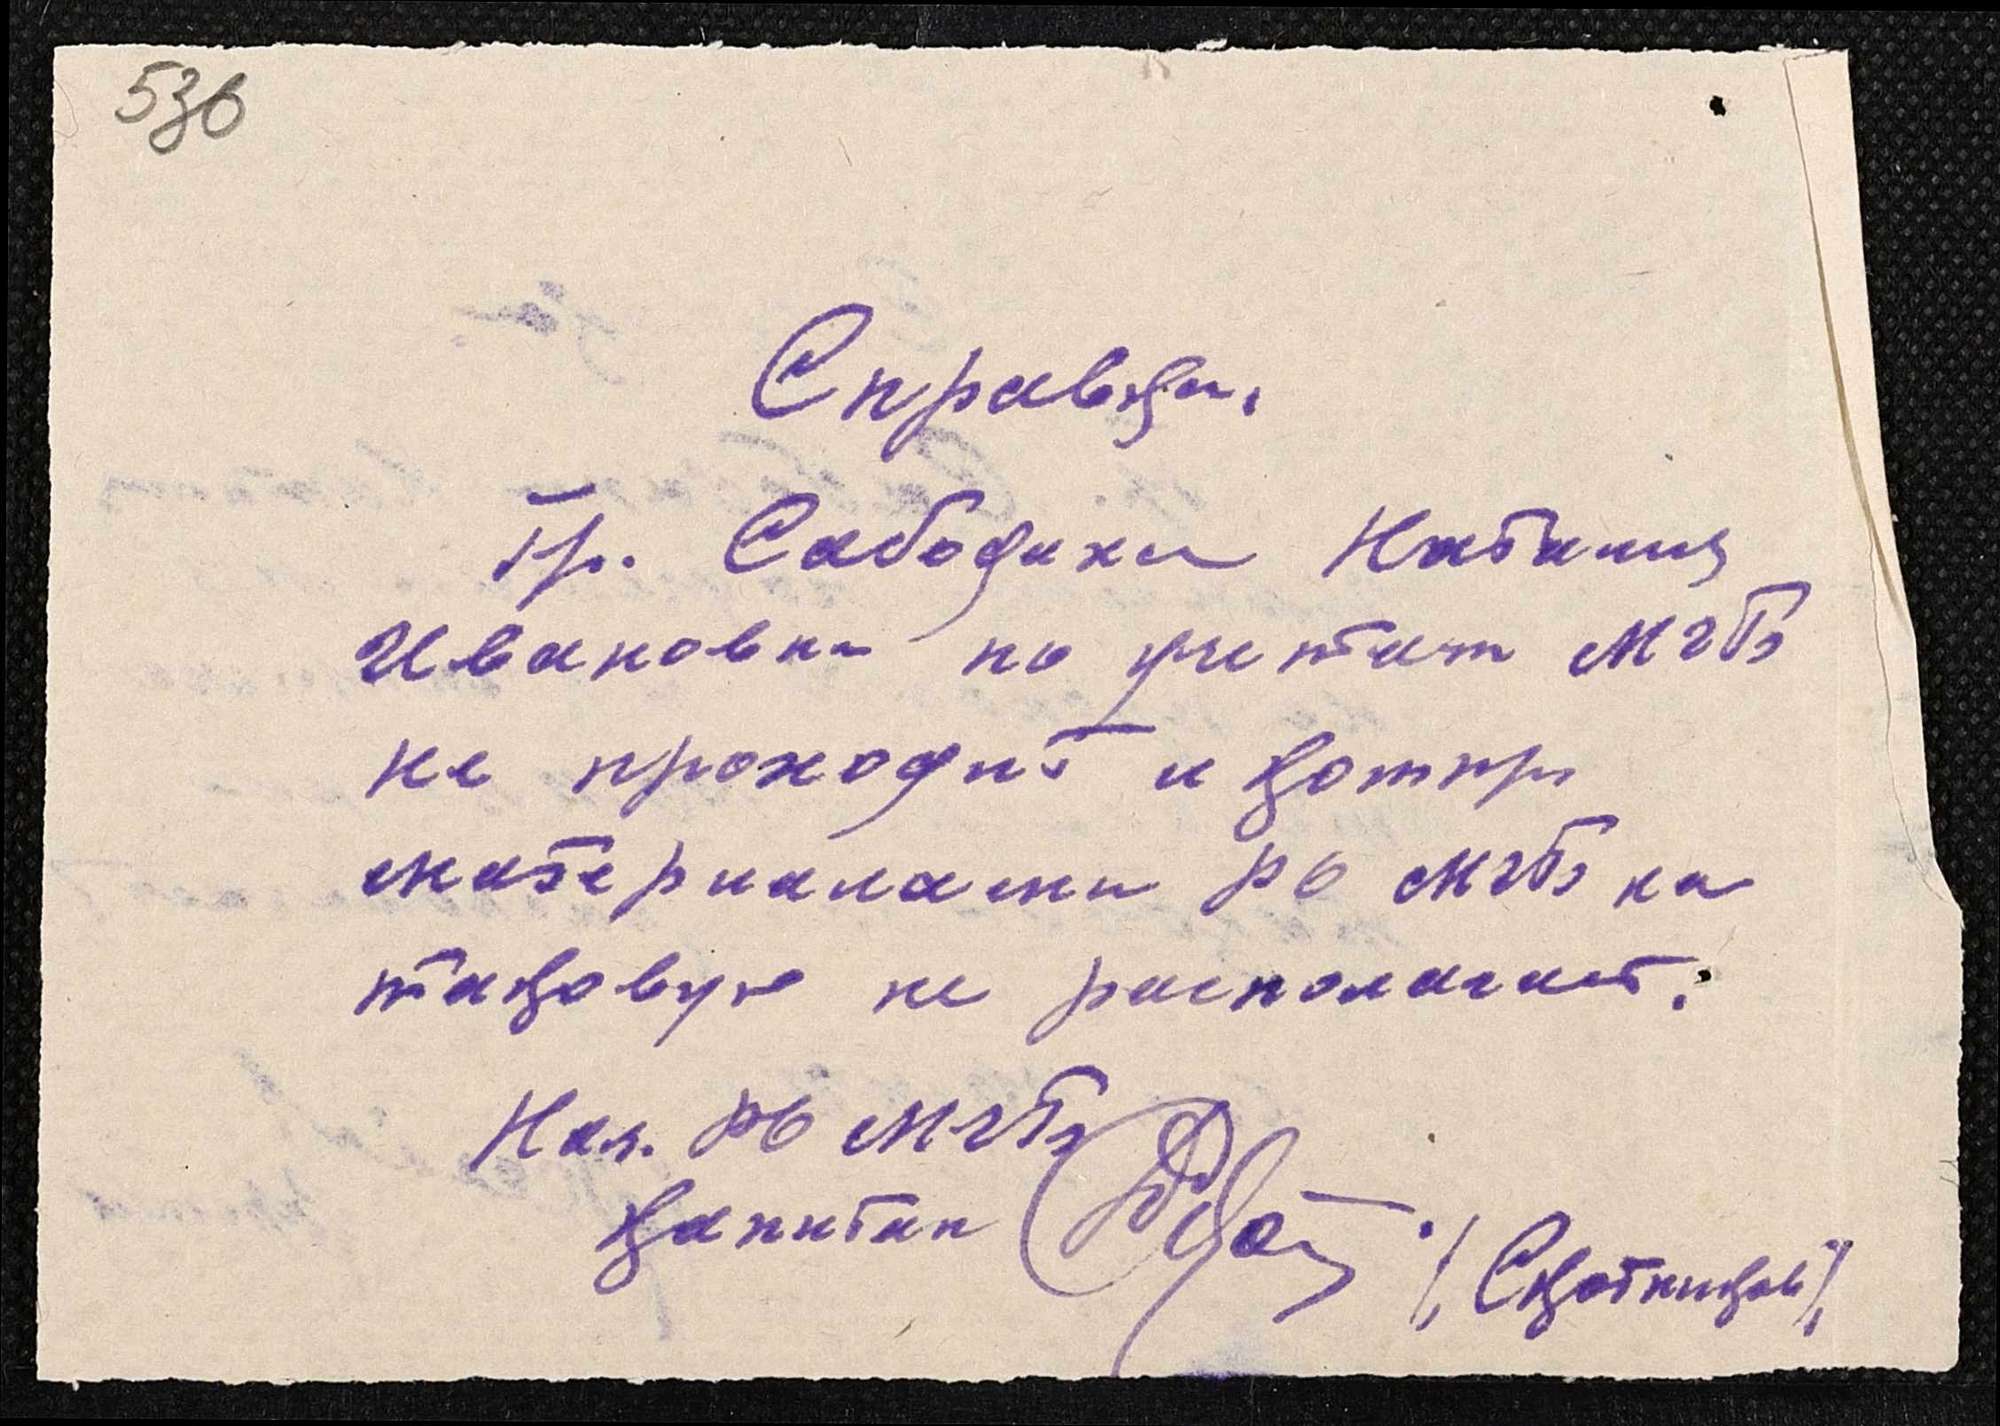 536
Справка.
Гр. Сабодина Наталия
Ивановна по учетам МГБ
не проходит и компр
материалами РО МГБ на
таковую не располагает.
Нач. РО МГБ
капитан
/Скотников/